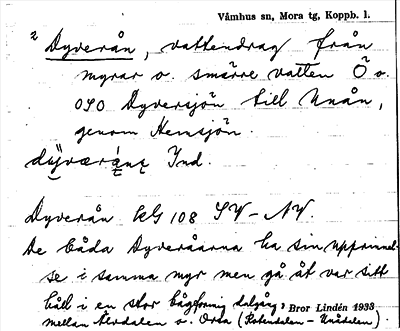 Våmhus sn, Mora tg, Koppb. l.
2 Dyverån, vattendrag från
myrar o. smärre vatten Ö o.
OSO Dyversjön till Unån,
genom Hemsjön.
Ind.
Dyverån kG 108 SV–NV.
De båda Dyveråarna ha sin upprinnel-
se i samma myr men gå åt var sitt
håll i en stor bågformig dalgång,
Bror Lindén 1933
mellan Älvdalen o. Orsa (Rotendalen – Unådalen).